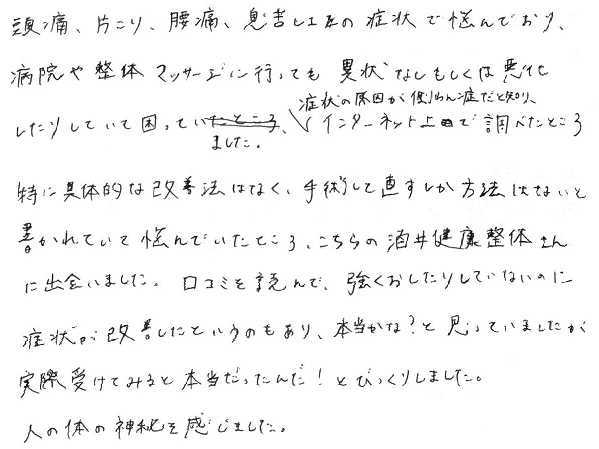 頭痛、片こり、腰痛、息苦しさ等の症状で悩んでおり、
病院や整体マッサージに行っても異状なしもしくは悪化
したりしていて困っていたところ、ました。症状の原因が側わん症だと知り、インターネット上で調べたところ
特に具体的な改善法はなく、手術して直すしか方法はないと
書かれていて悩んでいたところ、こちらの酒井健康整体さん
に出会いました。口コミを読んで、強くおしたりしていないのに
症状が改善したというのもあり、本当かな?と思っていましたが
実際受けてみると本当だったんだ!とびっくりしました。
人の体の神秘を感じました。